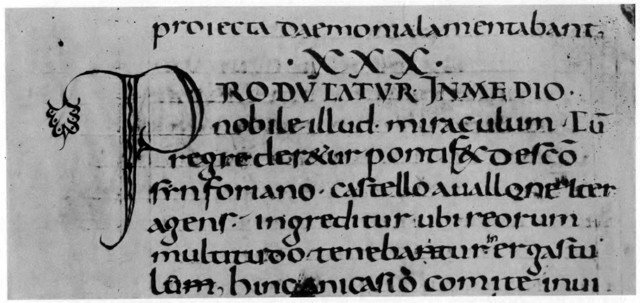 proiecta daemonia lamentabant.
·XXX·
PRODVCATVR· INMEDIO·
nobile illud· miraculum· Cū
regrederetur pontifex de scō
symforiano· castello avallone iter
agens· ingreditur ubi reorum
multitudo· tenebantur in ergastu
lum, comite inui